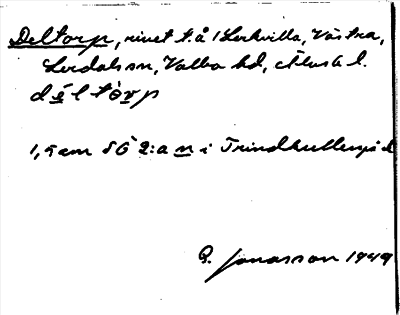 Deltorp, rivet t. å 1 Lerkvilla, Västra,
Lerdals sn, Valbo hd, Älvsb l.
déltòrp
1,5 cm SO 2:a n i Trindkullen på d
G. Jonasson 1949